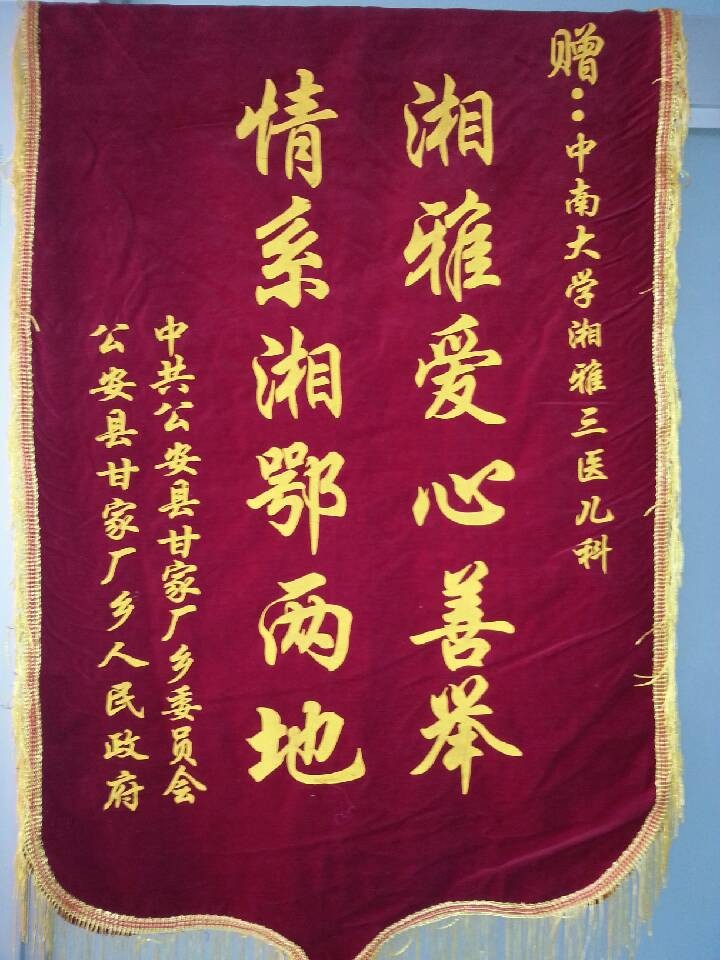 赠:中南大学湘雅三医儿科
湘雅爱心善举
情系湘鄂两地
中共公安县甘家厂乡委员会
公安县甘家厂乡人民政府